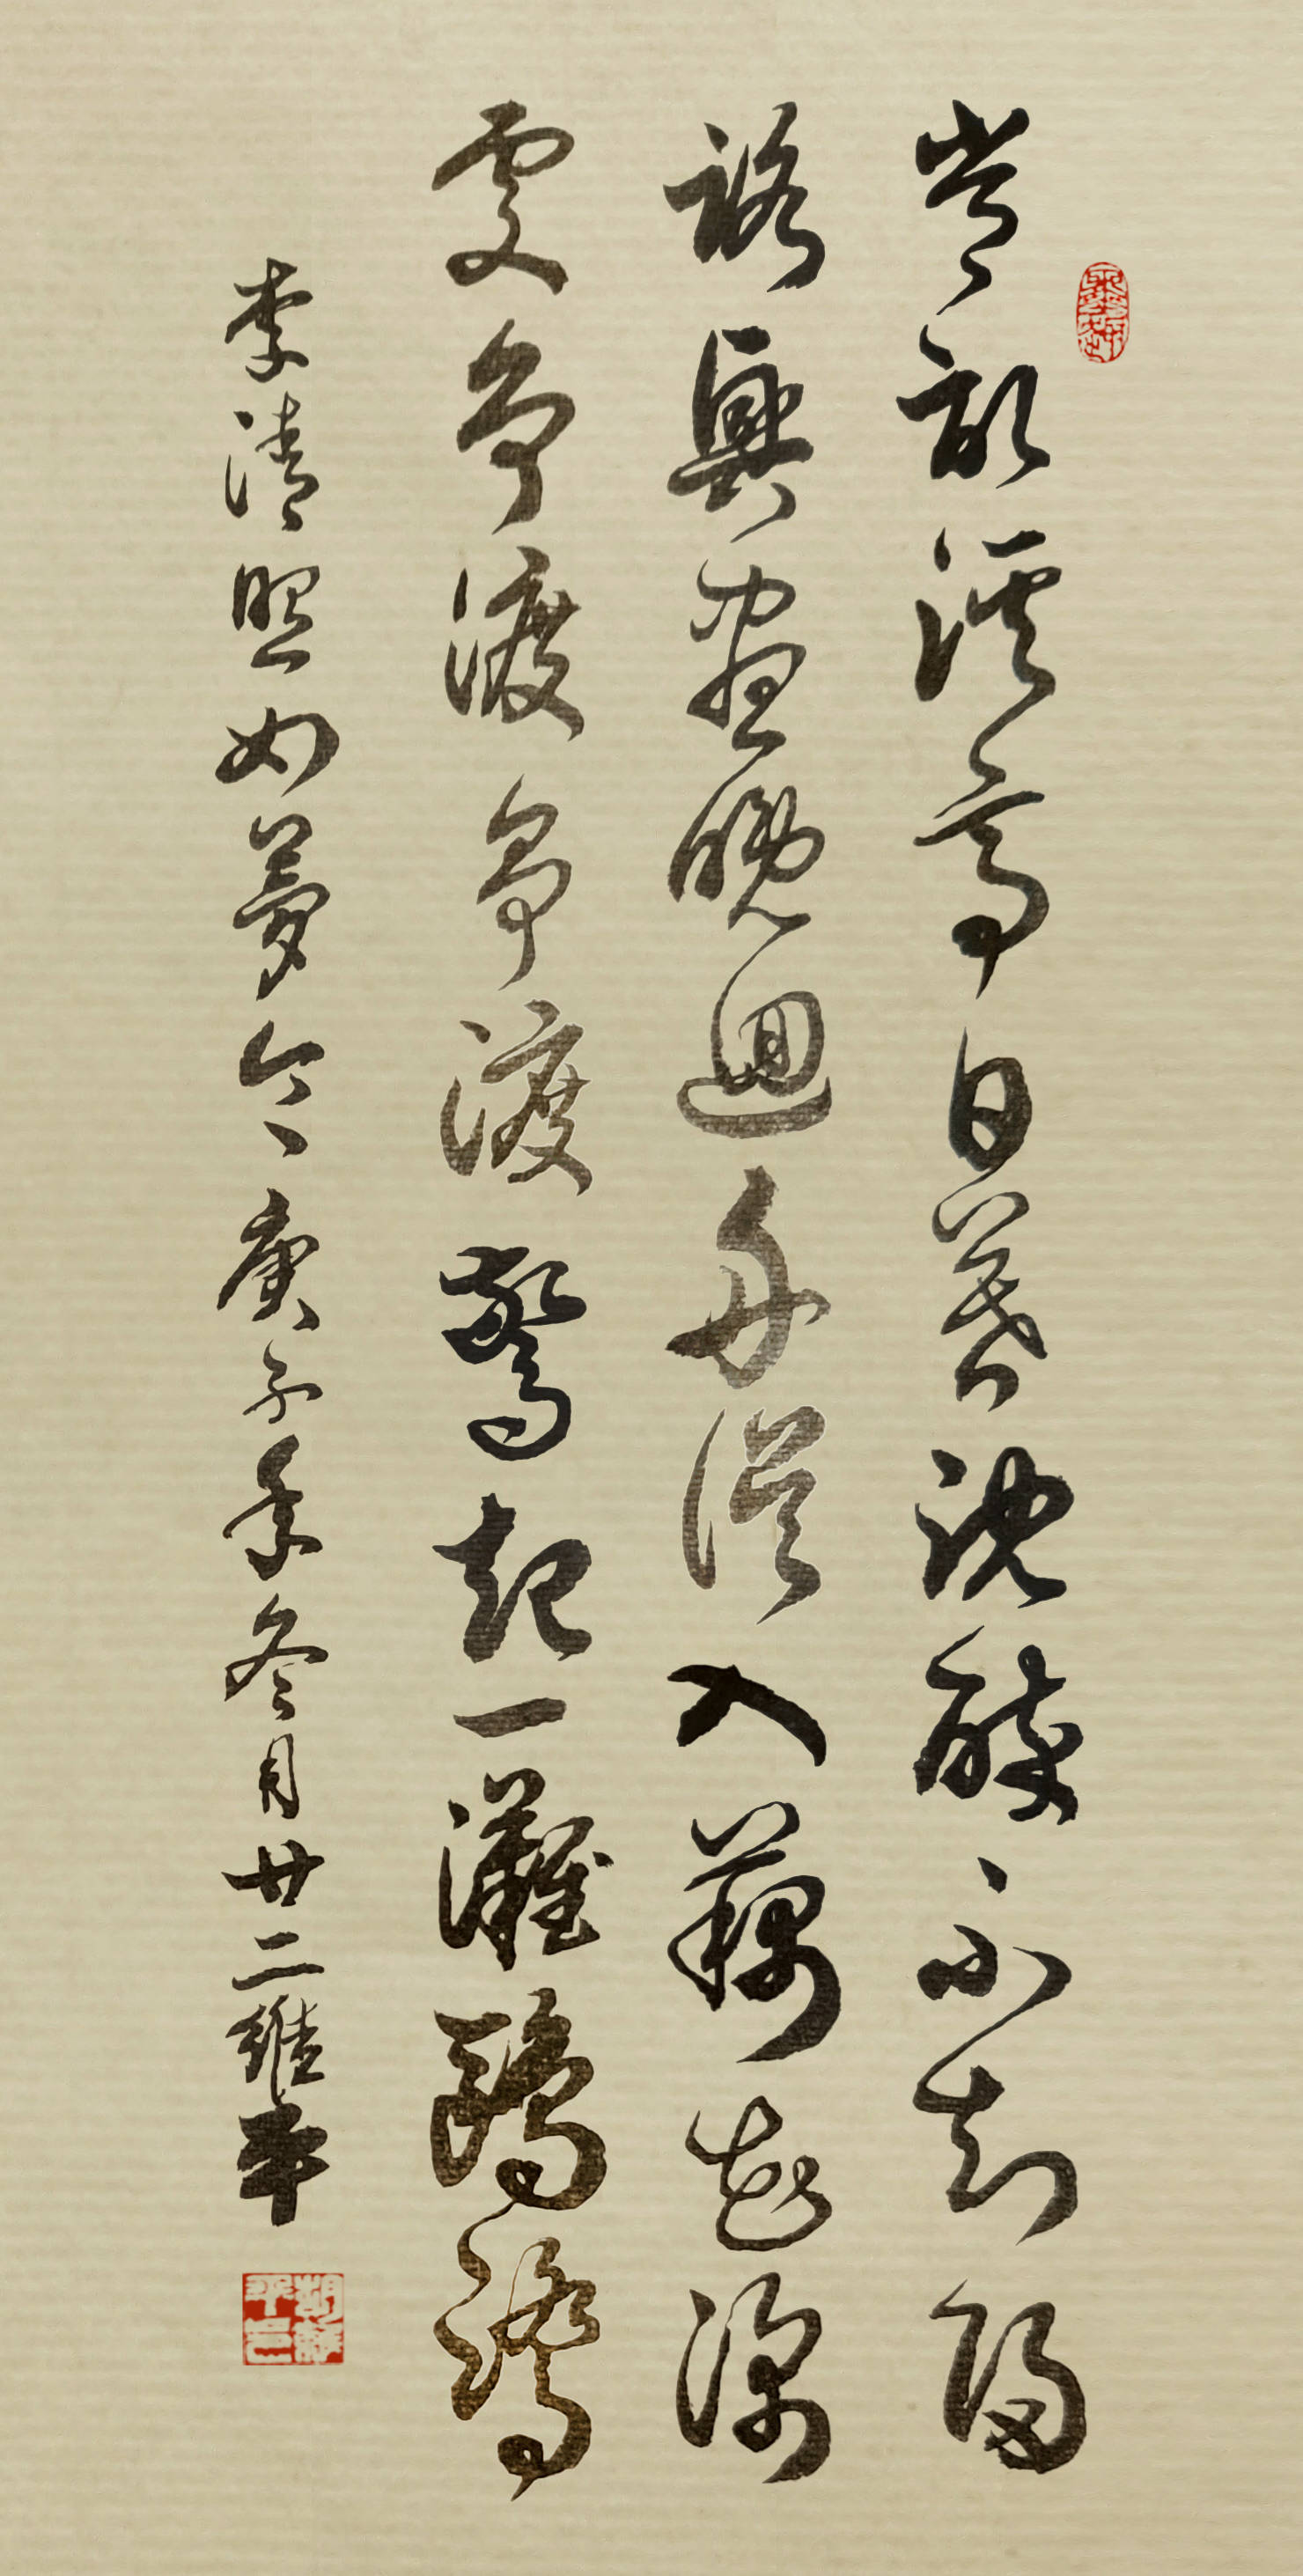 常記溪亭日暮沈醉不知歸
路興盡晚迴舟誤入藕花深
處爭渡爭渡驚起一灘鷗鷺
李清照如夢令庚子年冬月廿二維平
胡維平印